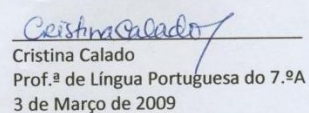 Cristina Calado
Cristina Calado
Prof.ª de Língua Portuguesa do 7.ºA
3 de Março de 2009